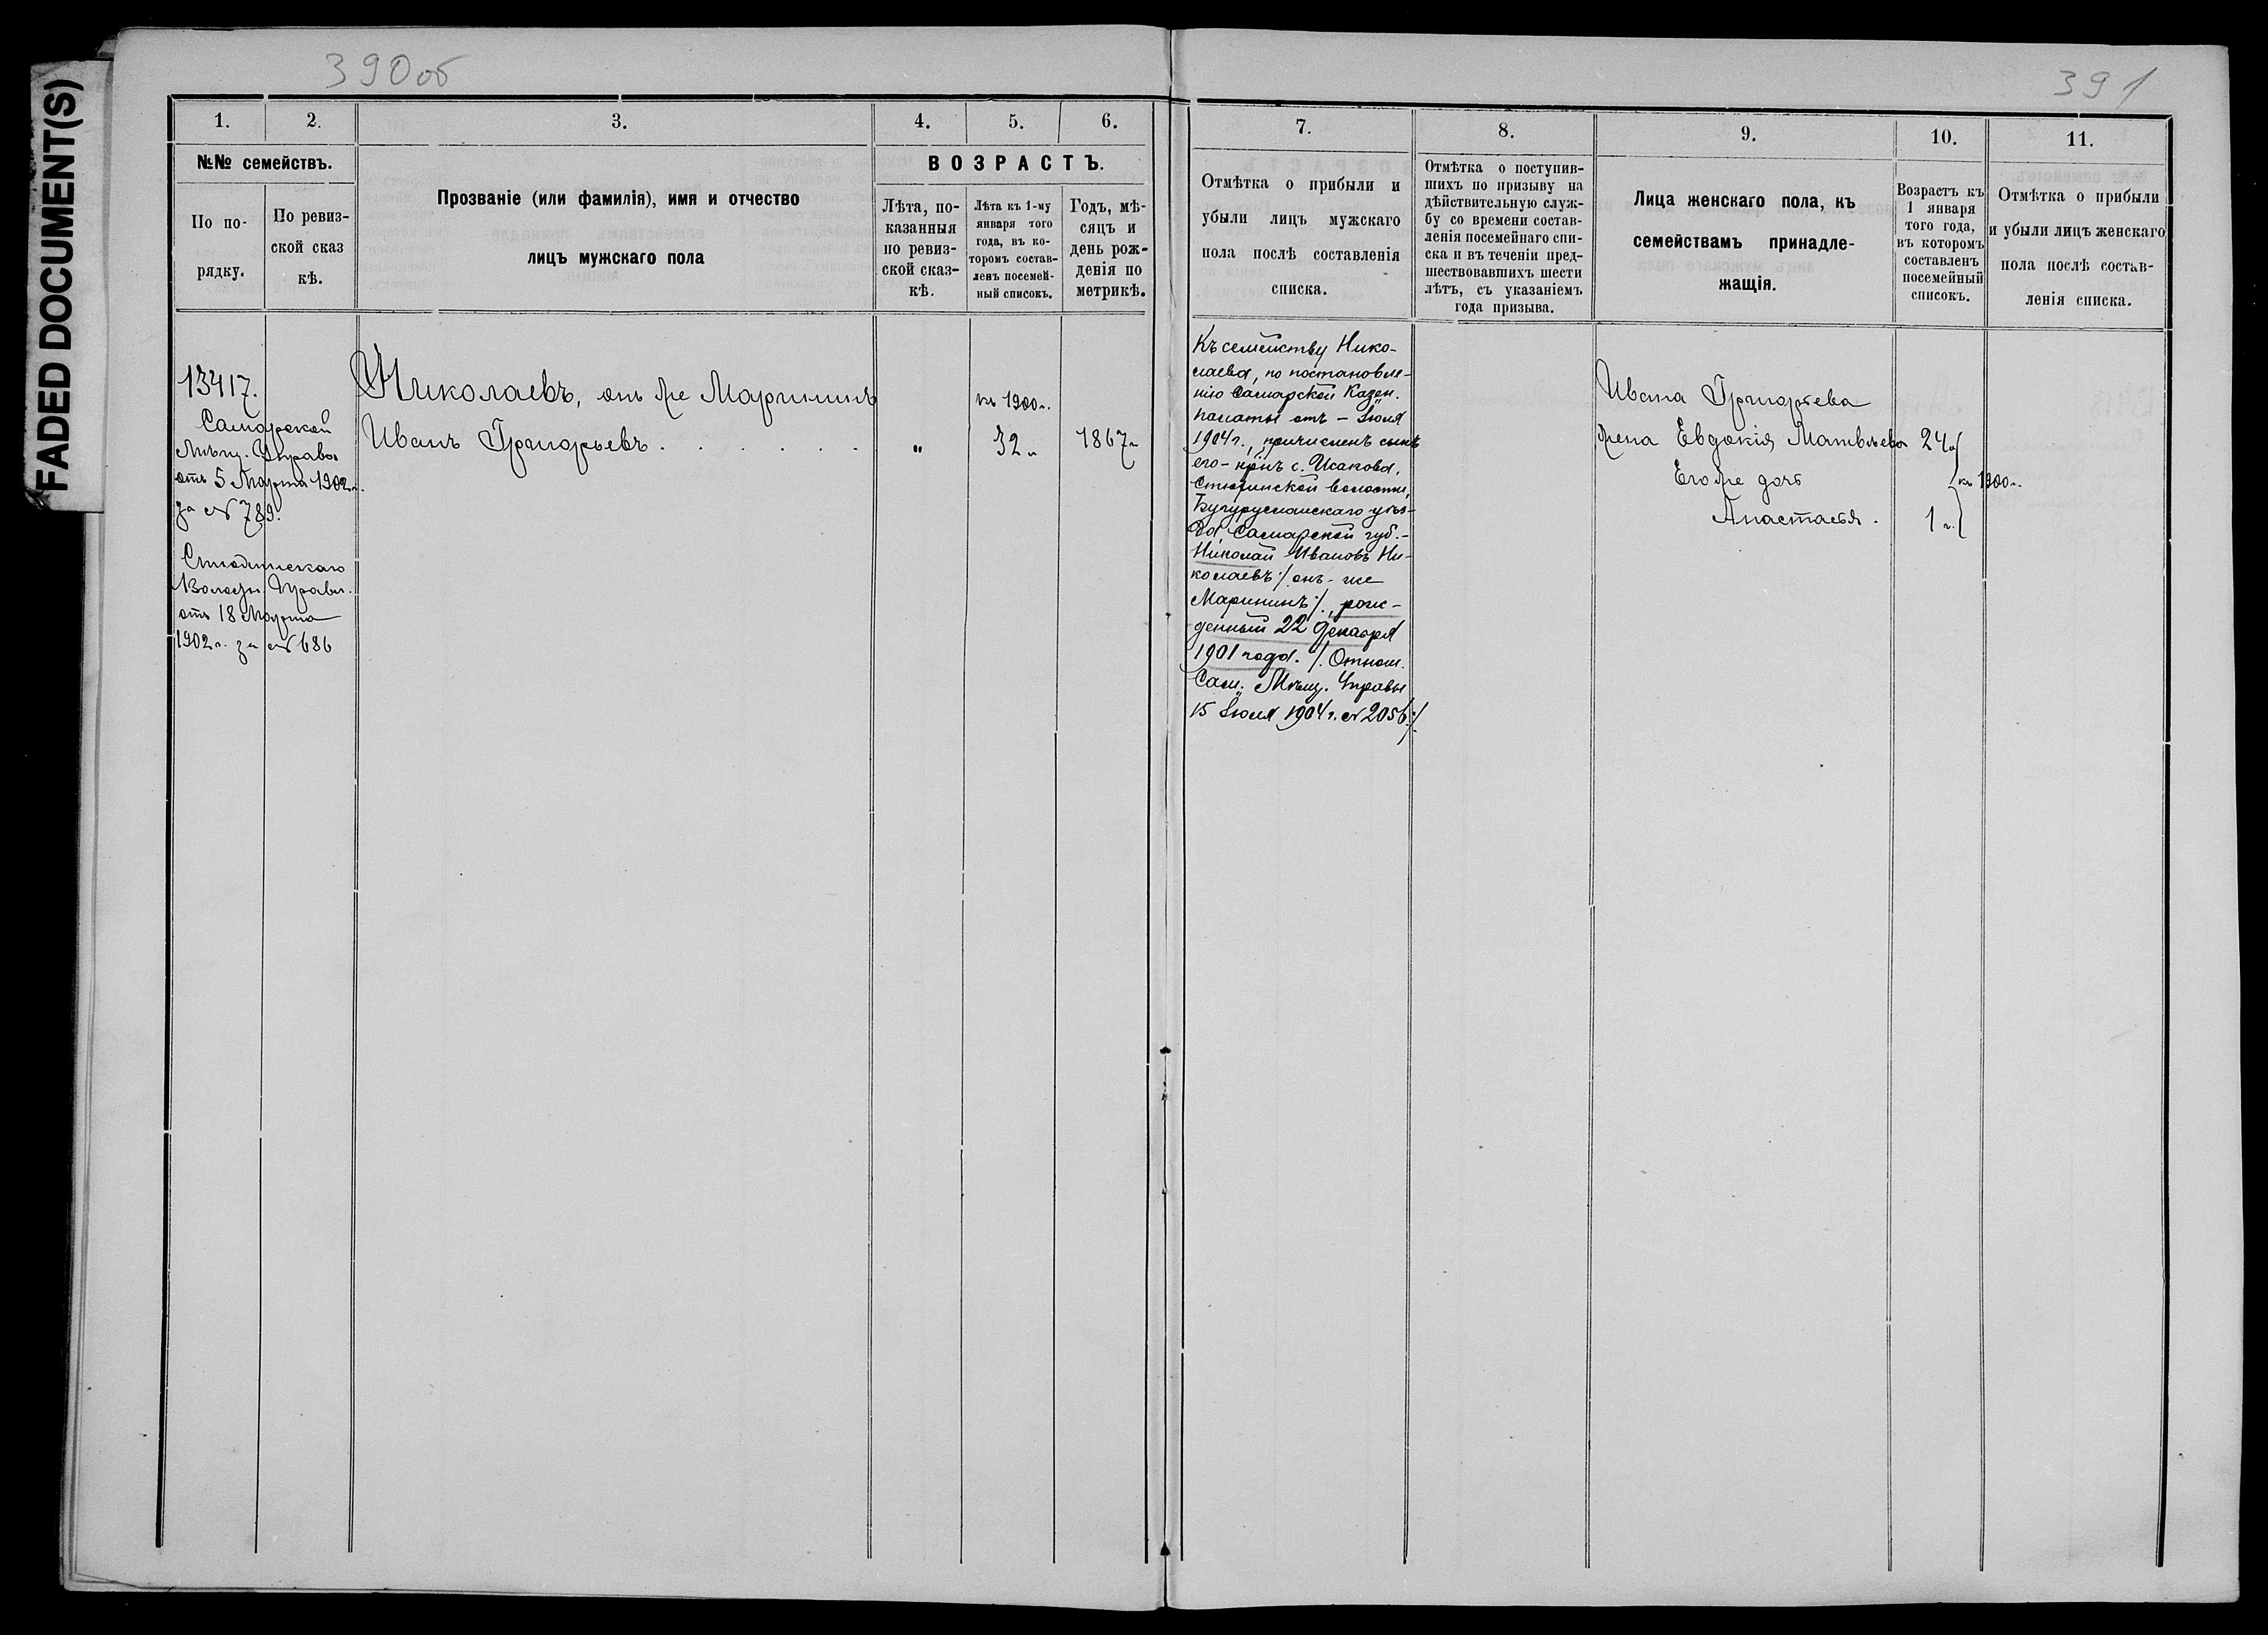 FADED DOCUMENT(S)
390об
1.
2.
3.
4.
5.
6.
№№ семействъ.
По по-
рядку.
По ревиз-
ской сказ
кѣ.
Прозваніе (или фамилія), имя и отчество
лицъ мужскаго пола
ВОЗРАСТЪ.
Лѣта, по-
казанныя
по ревиз-
ской сказ-
кѣ.
Лѣта къ 1-му
января того
года, въ ко-
торомъ состав-
ленъ посемей-
ный списокъ.
Годъ, мѣ-
сяцъ и
день рож-
денія по
метрикѣ.
13417.
Самарской
Мѣщ. Управы
отъ 5 Марта 1902 г.
за № 789.
Волостн. Правл.
отъ 18 Марта
1902 г. за № 686
Николаевъ, онъ же Марининъ
Иванъ Григорьевъ . . . . . .
"
къ 1900 г.
32 г.
1867 г.
391
7.
8.
9.
10.
11.
Отмѣтка о прибыли и
убыли лицъ мужскаго
пола послѣ составленія
списка.
Отмѣтка о поступив-
шихъ по призыву на
дѣйствительную служ-
бу со времени состав-
ленія посемейнаго спи-
ска и въ теченіи пред-
шествовавшихъ шести
лѣтъ, съ указаніемъ
года призыва.
Лица женскаго пола, къ
семействамъ принадле-
жащія.
Возрастъ къ
1 января
того года,
въ которомъ
составленъ
посемейный
списокъ.
Отмѣтка о прибыли
и убыли лицъ женскаго
пола послѣ состав-
ленія списка.
Къ семейству Нико-
лаева, по постановле-
нію Самарской Казен.
палаты отъ – Іюля
1904 г., причисленъ сынъ
его – кр̃нъ с. Исакова,
волости,
Бугурусланскаго уѣз-
да, Самарской губ. –
Николай Ивановъ Ни-
колаевъ /. онъ-же
Марининъ /., рож-
денный 22 Декабря
1901 года. /. Отнош.
Сам. Мѣщ. Управы
15 Іюля 1904 г. № 2056 ./.
Ивана Григорьева
жена Евдокія Матвѣева
Его же дочь
Анастасья.
24 г.
къ 1900 г.
1 г.